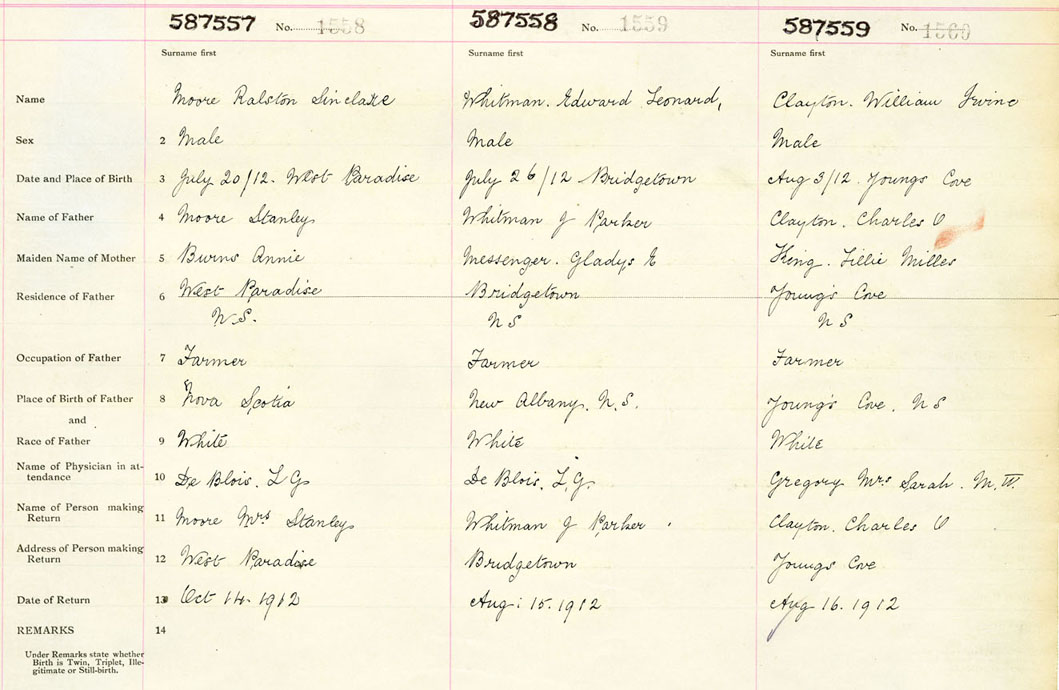 587557 No. 1558 587558 No. 1559 587559 No. 1560
Surname first Surname first Surname first
Name Moore Ralston Sinclaire Whitman. Edward Leonard, Clayton. William Irvine
Sex 2 Male Male Male
Date and Place of Birth 3 July 20/12. West Paradise July 26/12 Bridgetown Aug 3/12. Youngs Cove
Name of Father 4 Moore Stanley Whitman J Parker Clayton. Charles V
Maiden Name of Mother 5 Burns Annie Messenger. Gladys E King. Lillie Milles
Residence of Father 6 West Paradise Bridgetown Young's Cove
N.S. N S N S
Occupation of Father 7 Farmer Farmer Farmer
Place of Birth of Father 8 Nova Scotia New Albany. N.S. Young's Cove. N S
and
Race of Father 9 White White White
Name of Physician in at-
tendance 10 De Blois. L G De Blois. L.G. Gregory Mrs Sarah. M.W.
Name of Person making
Return 11 Moore Mrs Stanley Whitman J Parker Clayton. Charles V
Address of Person making
Return 12 West Paradise Bridgetown Youngs Cove
Date of Return 13 Oct 14. 1912 Aug: 15. 1912 Aug 16. 1912
REMARKS 14
Under Remarks state whether
Birth is Twin, Triplet, Ille-
gitimate or Still-birth.